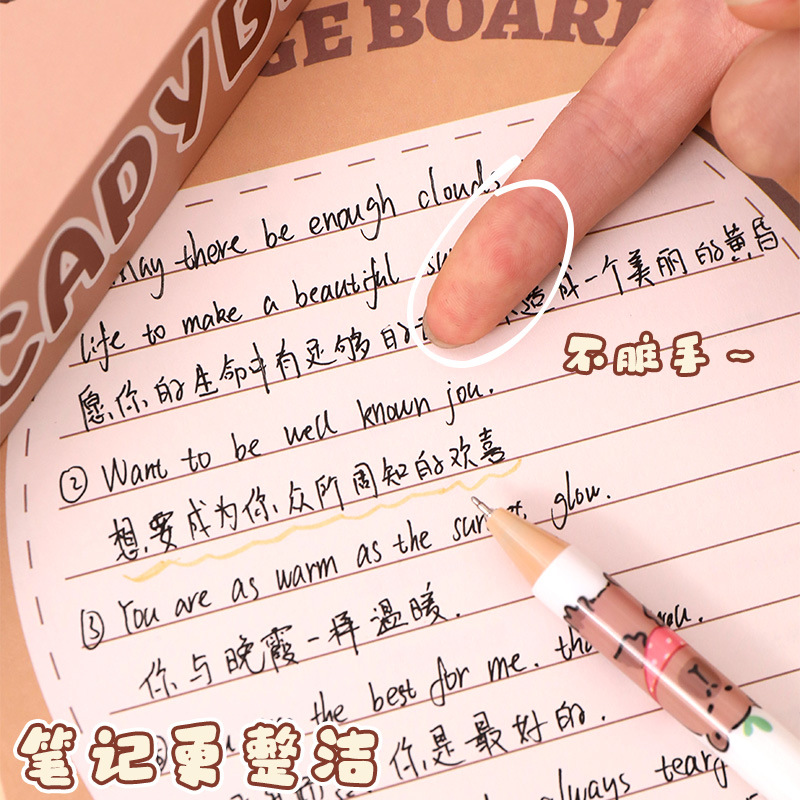 GE BOARD
CAPYB
may there be enough clouds
life to make a beautiful su
愿你的生命中有足够的 造成一个美丽的黄昏
不脏手~
② Want to be well known jou.
想要成为你,众所周知的欢喜
③ You are as warm as the sunset glow.
你与晚霞一样温暖.
the best for me. you.
你是最好的.
always
笔记更整洁